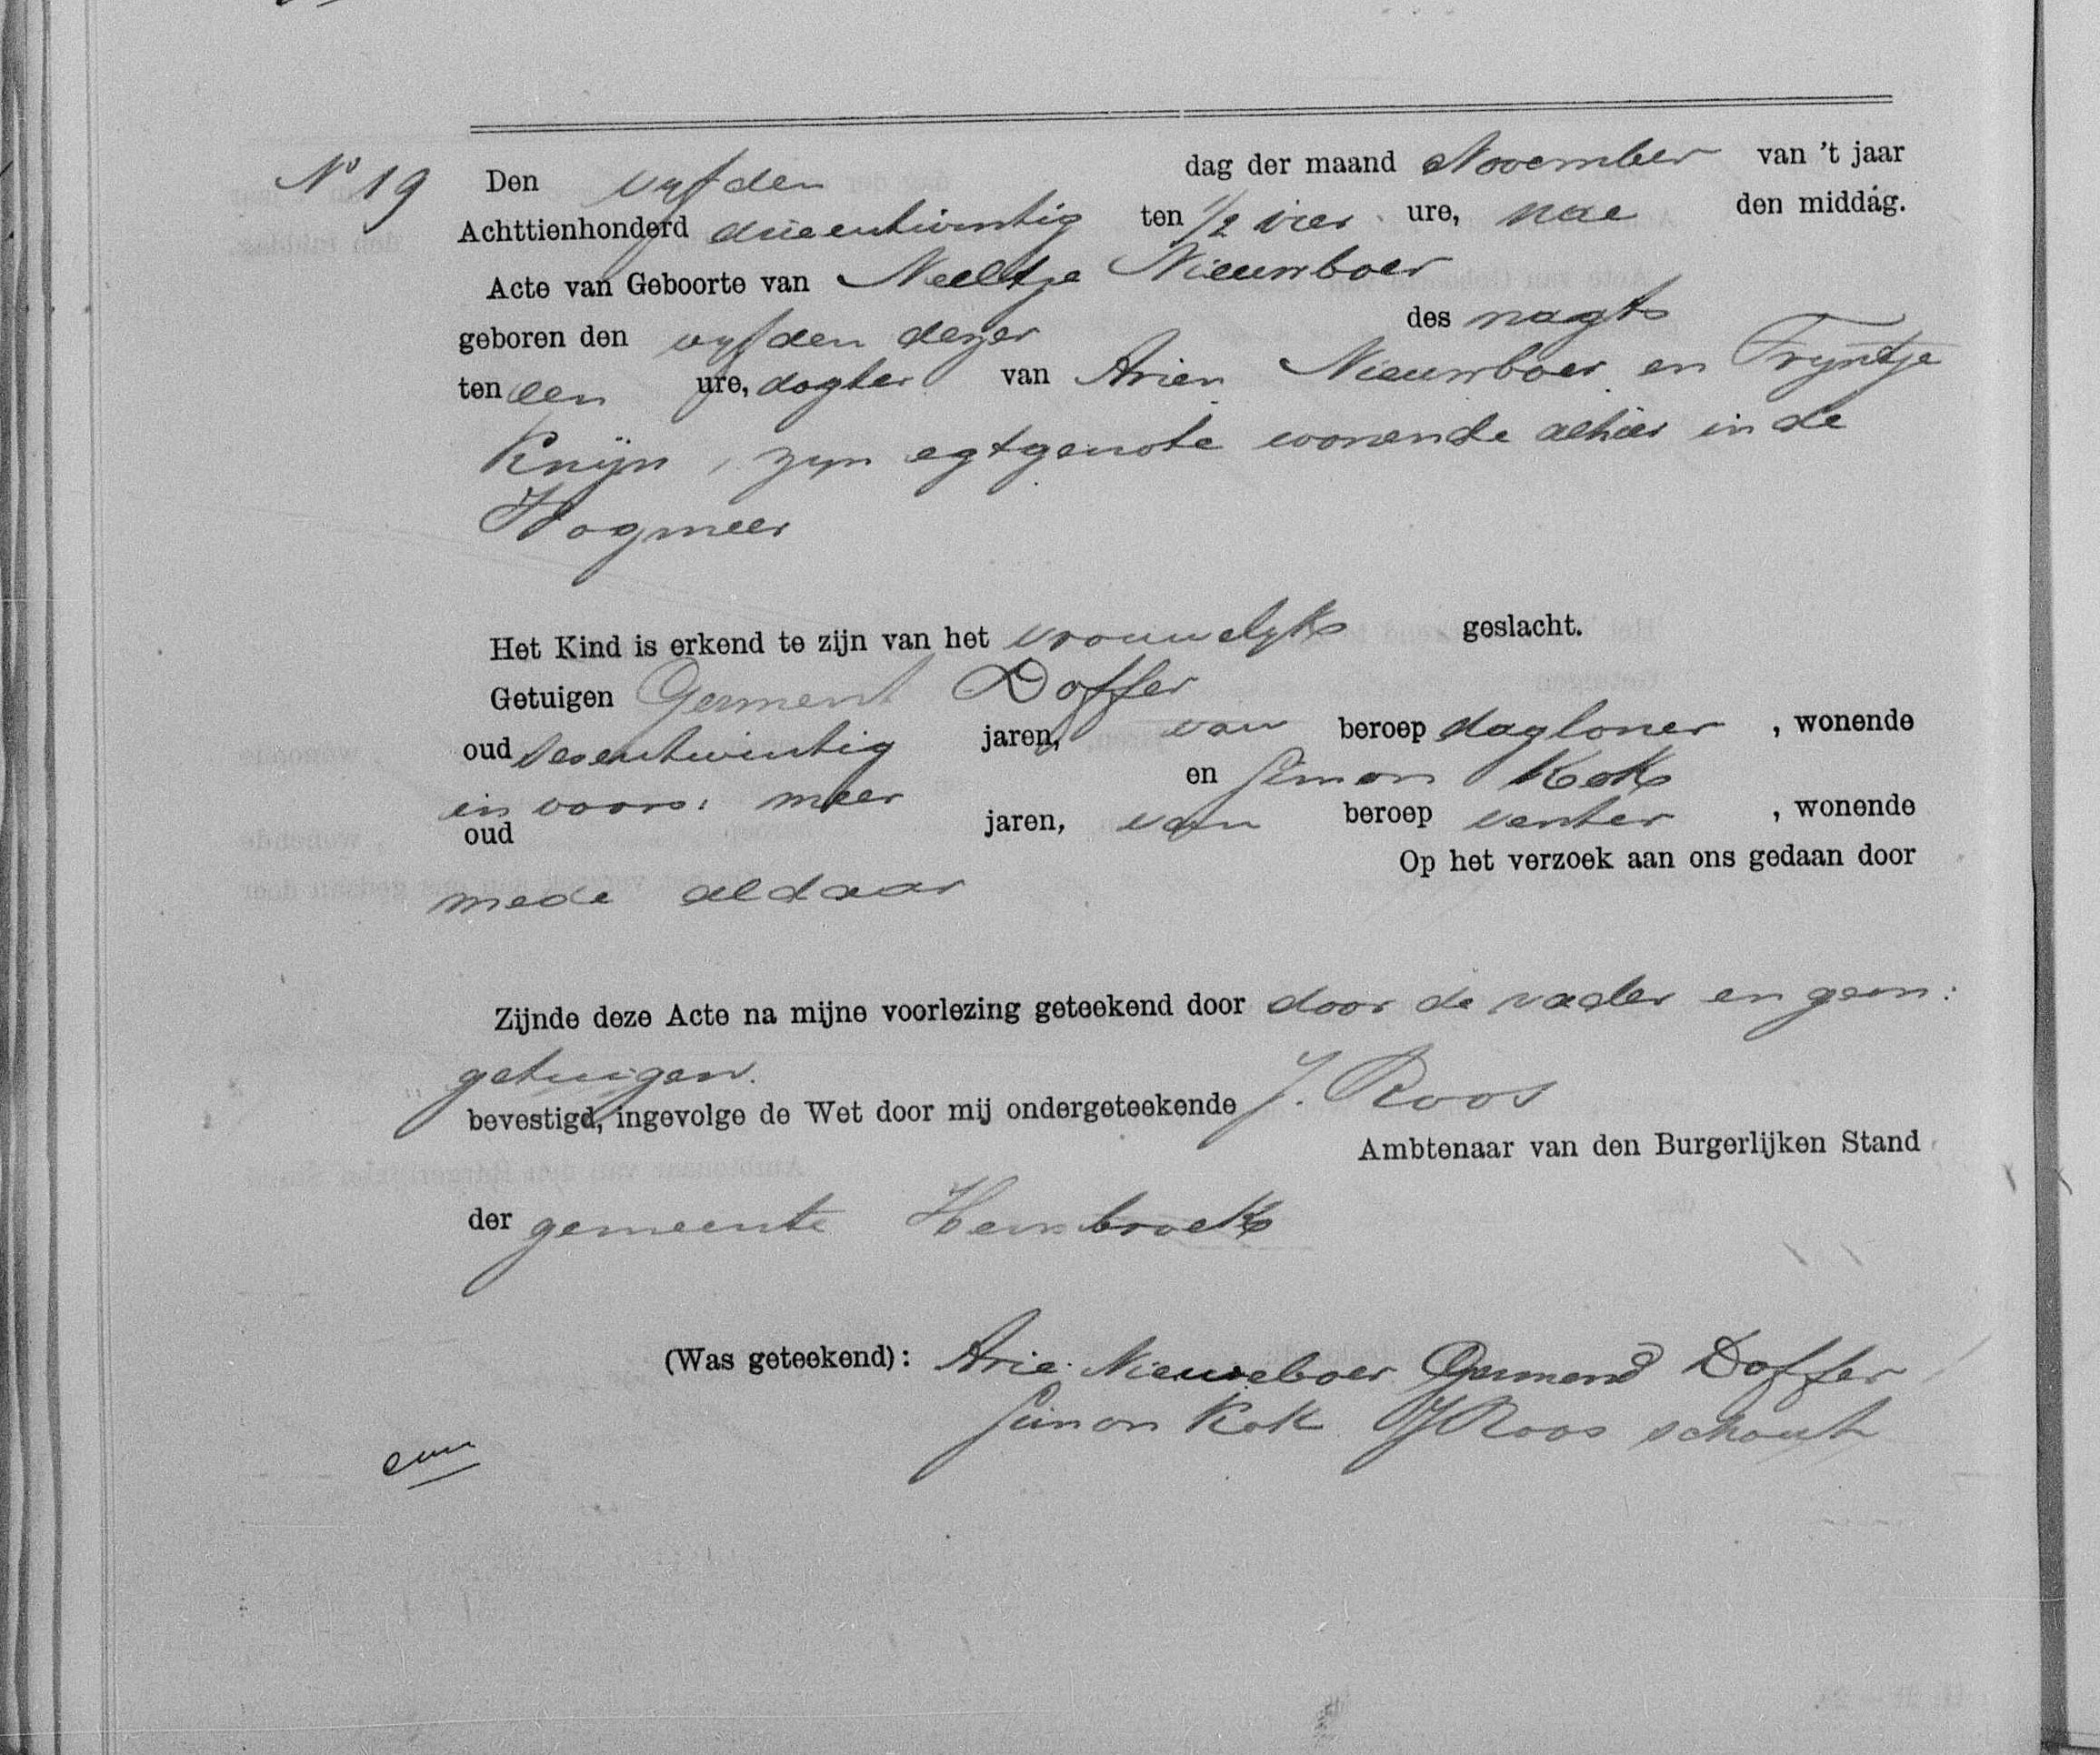 No 19 Den vyfden dag der maand November van 't jaar
Achttienhonderd drieentwintig ten 1/2 vier ure, nae den middag.
Acte van Geboorte van Neeltje Nieuwboer
geboren den vyfden dezer des nagts
ten een ure, dogter van Arien Nieuwboer en Tryntje
Knijn, zyn egtgenote wonende alhier in de
Hogmeer
Het Kind is erkend te zijn van het vrouwelyk geslacht.
Getuigen Germent Doffer
oud sesentwintig jaren, van beroep dagloner, wonende
in voors: meer en Simon Kok
oud jaren, van beroep venter, wonende
mede aldaar Op het verzoek aan ons gedaan door
Zijnde deze Acte na mijne voorlezing geteekend door door de vader en gem:
getuigen.
bevestigd, ingevolge de Wet door mij ondergeteekende J. Roos
Ambtenaar van den Burgerlijken Stand
der gemeente Hensbroek
(Was geteekend): Arie Nieuweboer Germend Doffer
Simon Kok J Roos schout